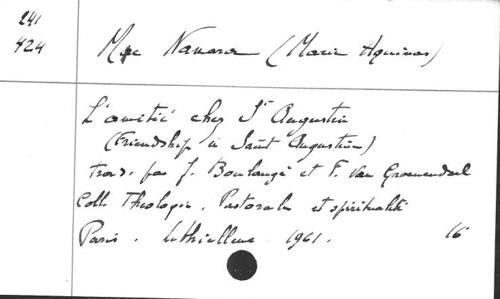 241
424
Mac Namara (Marie Aquinas)
L'amitié chez St Augustin
(Friendship in Saint Augustine)
trad. par J. Boulangé et F. Van Groenendael
Coll. Théologie, Pastorale et spiritualité
Paris. Lethielleux 1961. 16